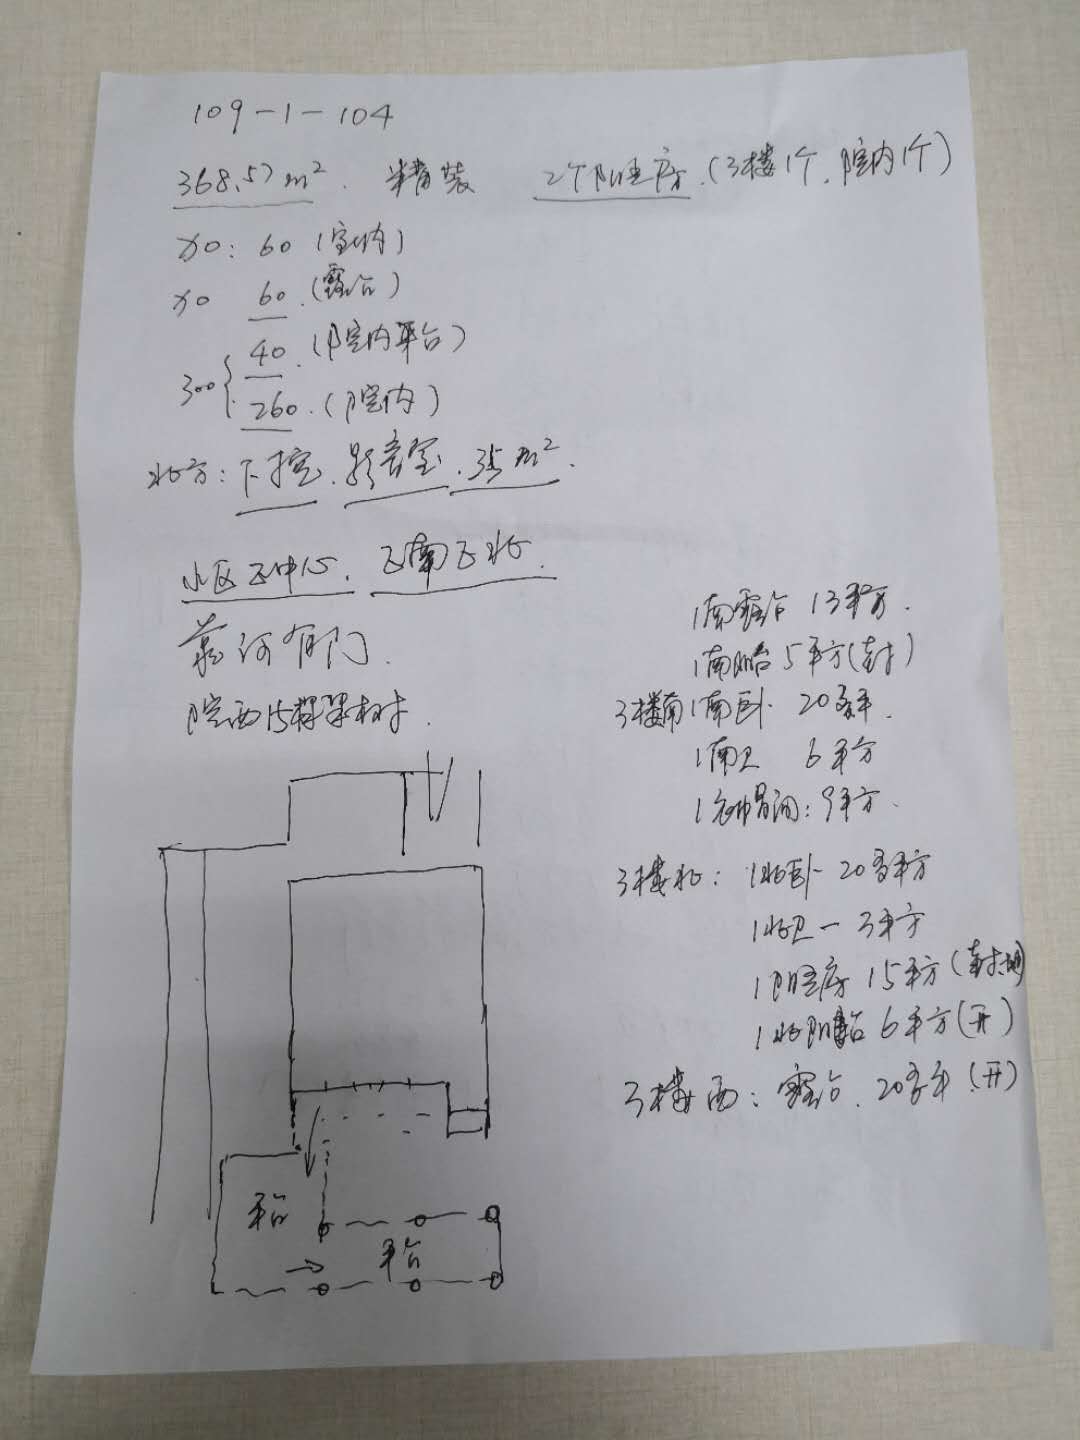 109-1-104
368.57m². 精装 2个阳光房.(3楼1个.院内1个)
: 60 (室内)
60.(露台)
300{ 40.(院内平台)
260.(院内)
北方:下挖.影音室.35m².
小区正中心.正南正北.
有门.
院西15棵果树.
1南露台 13平方.
1南阳台 5平方(封)
3楼南1南卧 20多平.
1南卫 6平方
1衣帽间:9平方.
3楼北:1北卧 20多平方
1北卫一 3平方
1阳光房 15平方(封
1北阳台 6平方(开)
3楼西:露台.20多平.(开)
平台
平台